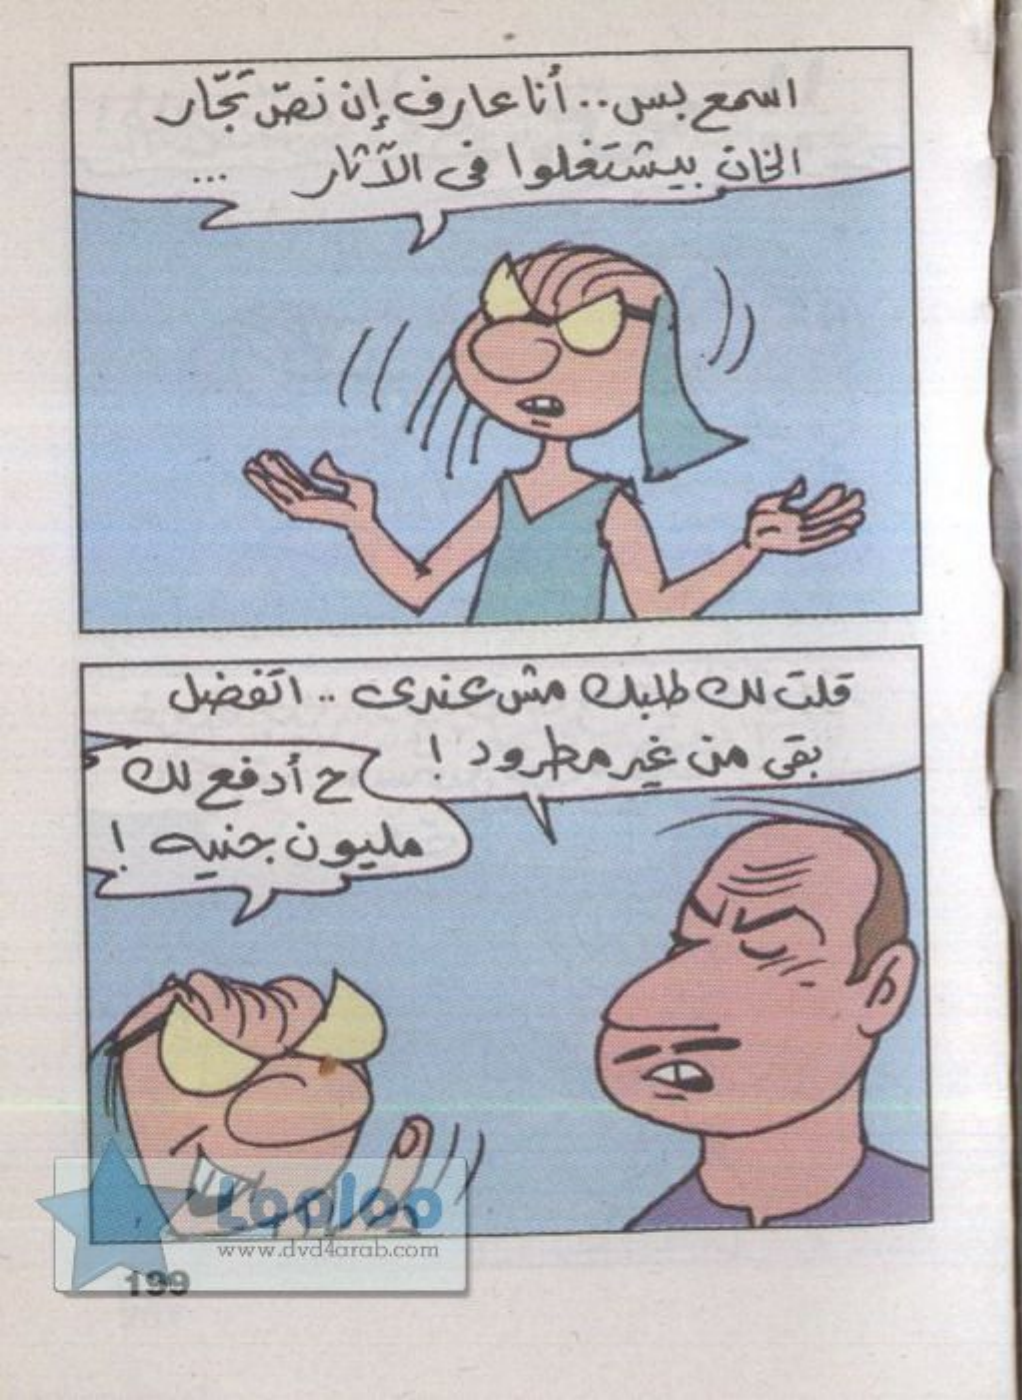 اسمع بس.. أنا عارف إن نصّ تجّار
الخان بيشتغلوا فى الآثار ...
قلت لك طلبك مش عندى .. اتفضل
بقى من غير مطرود !
ح أدفع لك
مليون جنيه !
Looloo
www.dvd4arab.com
199